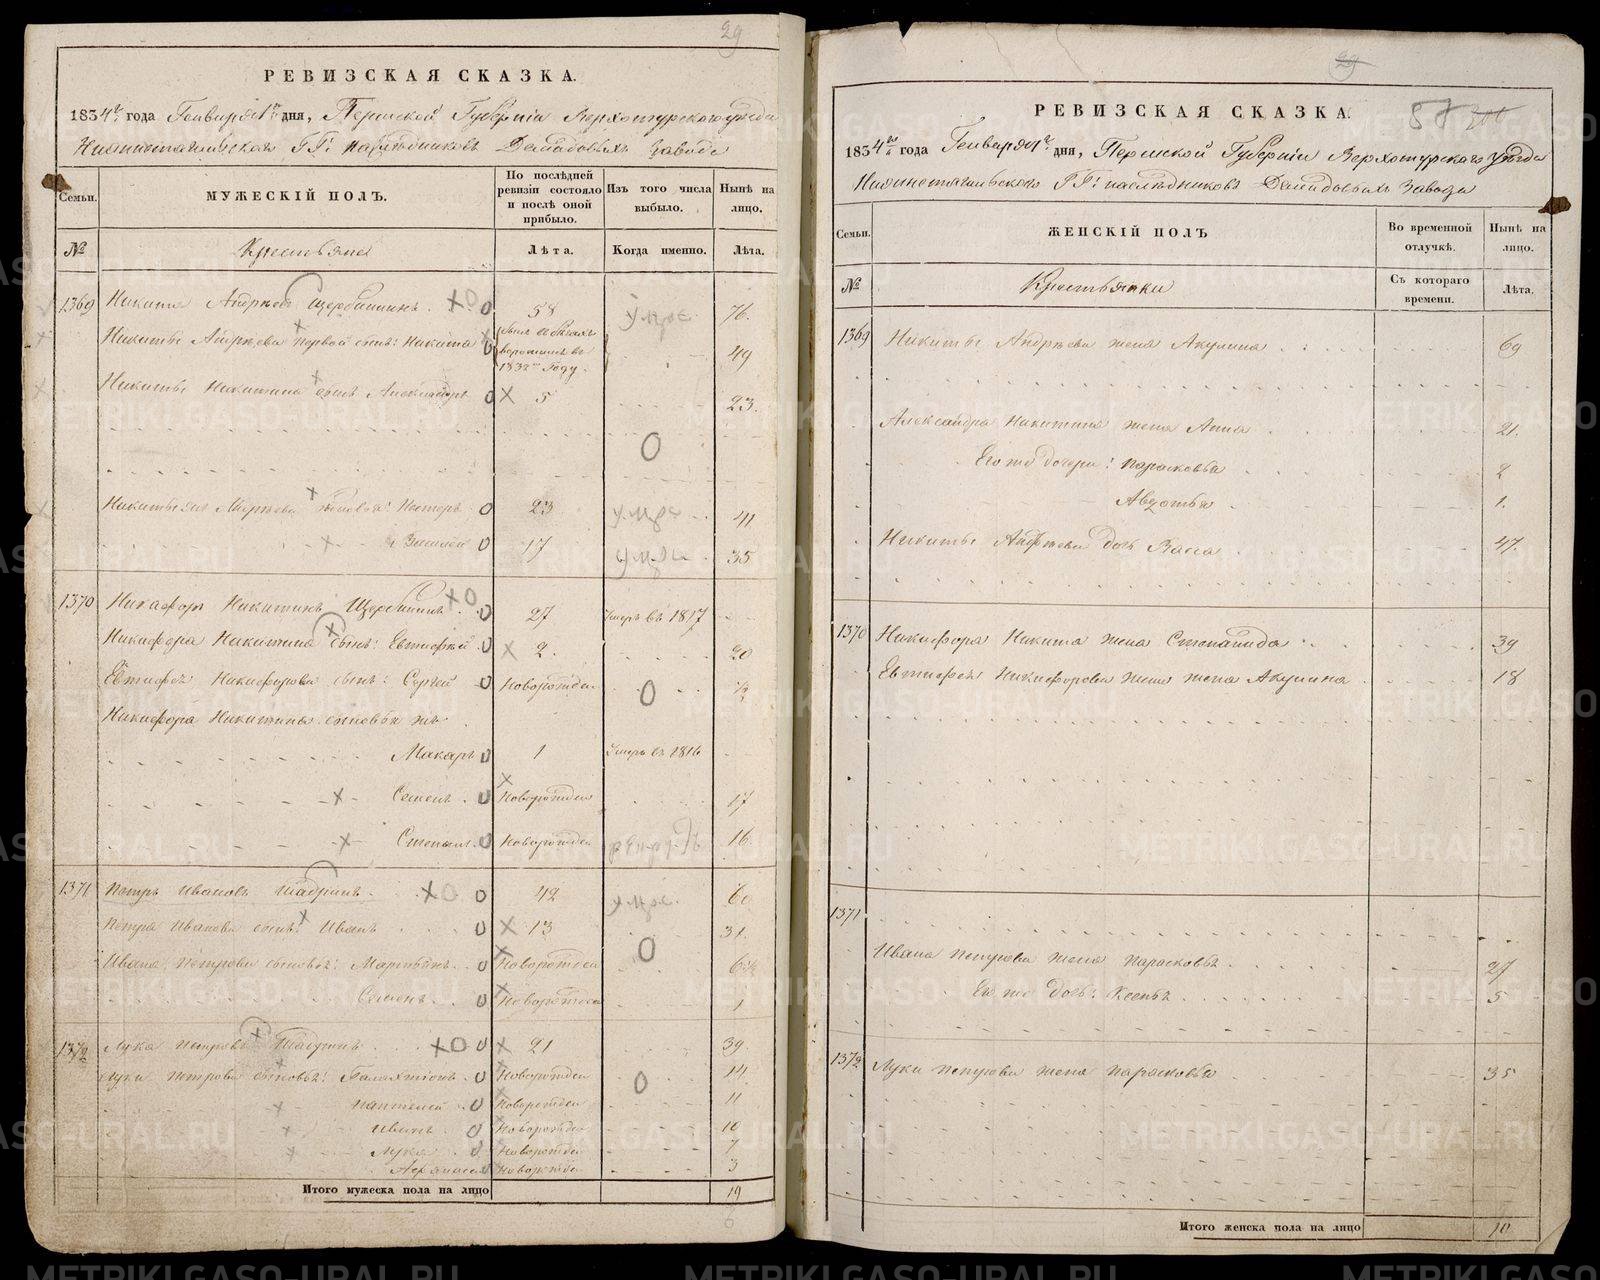 29
РЕВИЗСКАЯ СКАЗКА.
1834 года Генваря 1 дня, Пермской Губерніи Верхотурского уезда
Нижнетагильскаго ГГ: наследниковъ Демидовыхъ завода
Семьи.
МУЖЕСКІЙ ПОЛЪ.
По послѣдней ревизіи состояло и послѣ оной прибыло.
Изъ того числа выбыло.
Нынѣ на лицо.
№
Крестьяне
Лѣта.
Когда именно.
Лѣта.
1369 Никита Андреев Щербининъ. 58 умре 76.
Никиты Андреева первой сынъ: Никита былъ в бегахъ 49
воротился въ
1832 году.
Никиты Никитина сынъ Александръ 5 23.
Никиты Андреева сыновья: Нестеръ 23 умре 41
Василей 17 умре 35
1370 Никифор Никитинъ Щербининъ 27 Умеръ въ 1817
Никифора Никитина сынъ: Евтифей 2. 20
Евтифея Никифорова сынъ: Сергей Новорожден. ½
Никифора Никитина сыновья
Макаръ 1 Умеръ въ 1816
Семенъ. Новорожден 17
Степанъ. Новорожден рекрутъ 16
1371 Петръ Ивановъ Шадринъ. 42 умре. 60
Петра Иванова сынъ: Иванъ 13 31.
Ивана Петрова сыновья: Мартынъ. Новорожден 6½
Семенъ. Новорожден 1
1372 Лука Петровъ Шадринъ 21 39.
Луки Петрова сыновья: Галактіонъ. Новорожден 14
Пантелей Новорожден 11
Иванъ. Новорожден 10
Лука Новорожден 7
Афанасей Новорожден 3
Итого мужеска пола на лицо 19
6
29
58
РЕВИЗСКАЯ СКАЗКА.
1834 года Генваря 1 дня, Пермской Губерніи Верхотурскаго уезда
Нижнетагильскаго ГГ: наследниковъ Демидовыхъ завода
Семьи.
ЖЕНСКІЙ ПОЛЪ
Во временной отлучкѣ.
Нынѣ на лицо.
№
Крестьянки
Съ котораго времени.
Лѣта.
1369 Никиты Андреева жена Акулина 69
Александра Никитина жена Анна 21.
Его же дочери: Парасковья 2
Авдотья 1.
Никиты Андреева дочь Васса 47.
1370 Никифора Никитина жена Степанида 39
Евтифея Никифорова жена Акулина 18
1371
Ивана Петрова жена Парасковья. 27
Его же дочь: Ксенья 5
1372 Луки Петрова жена Парасковья 35
Итого женска пола на лицо 10
METRIKI.GASO-URAL.RU